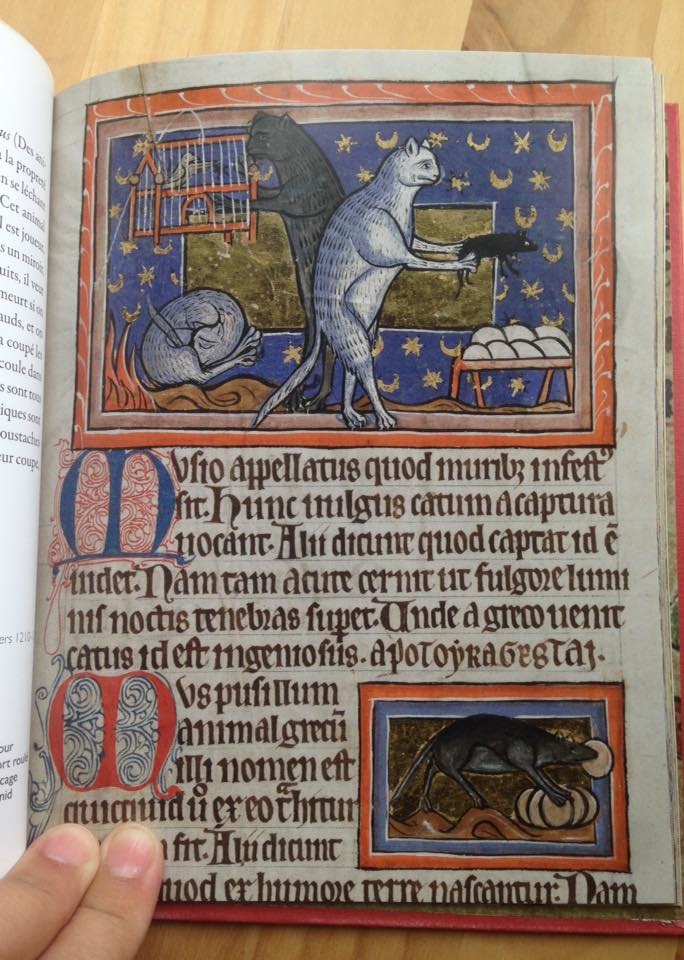 us (Des ani-
à la propreté
n se léchant
Cet animal
l est joueur,
s un miroir,
uits, il veut
meurt si on
auds, et on
a coupé les
coule dans
s sont tous
iques sont
oustaches
eur coupe
ers 1210-
our
ort roulé
cage
mid
Musio appellatus quod muribꝫ infestꝰ
sit. Hunc uulgus catum a captura
uocant. Alii dicunt quod captat id ē
uidet. Nam tam acute cernit ut fulgore lumi
nis noctis tenebras suꝑet. Unde a greco uenit
catus id est ingeniosus. apotoykagestai.
Mus pusillum
animal grecū
illi nomen est
quicquid ex eo
fit. Alii dicunt
quod ex humore terre nascantur. Nam